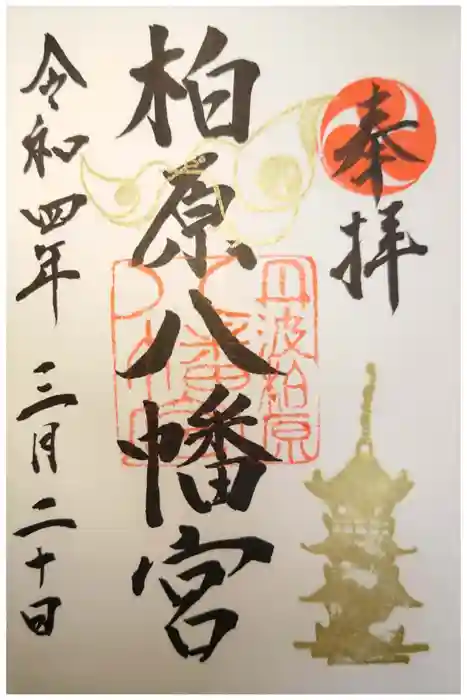 奉拝
柏原八幡宮
丹波柏原
八幡宮
令和四年 三月二十日